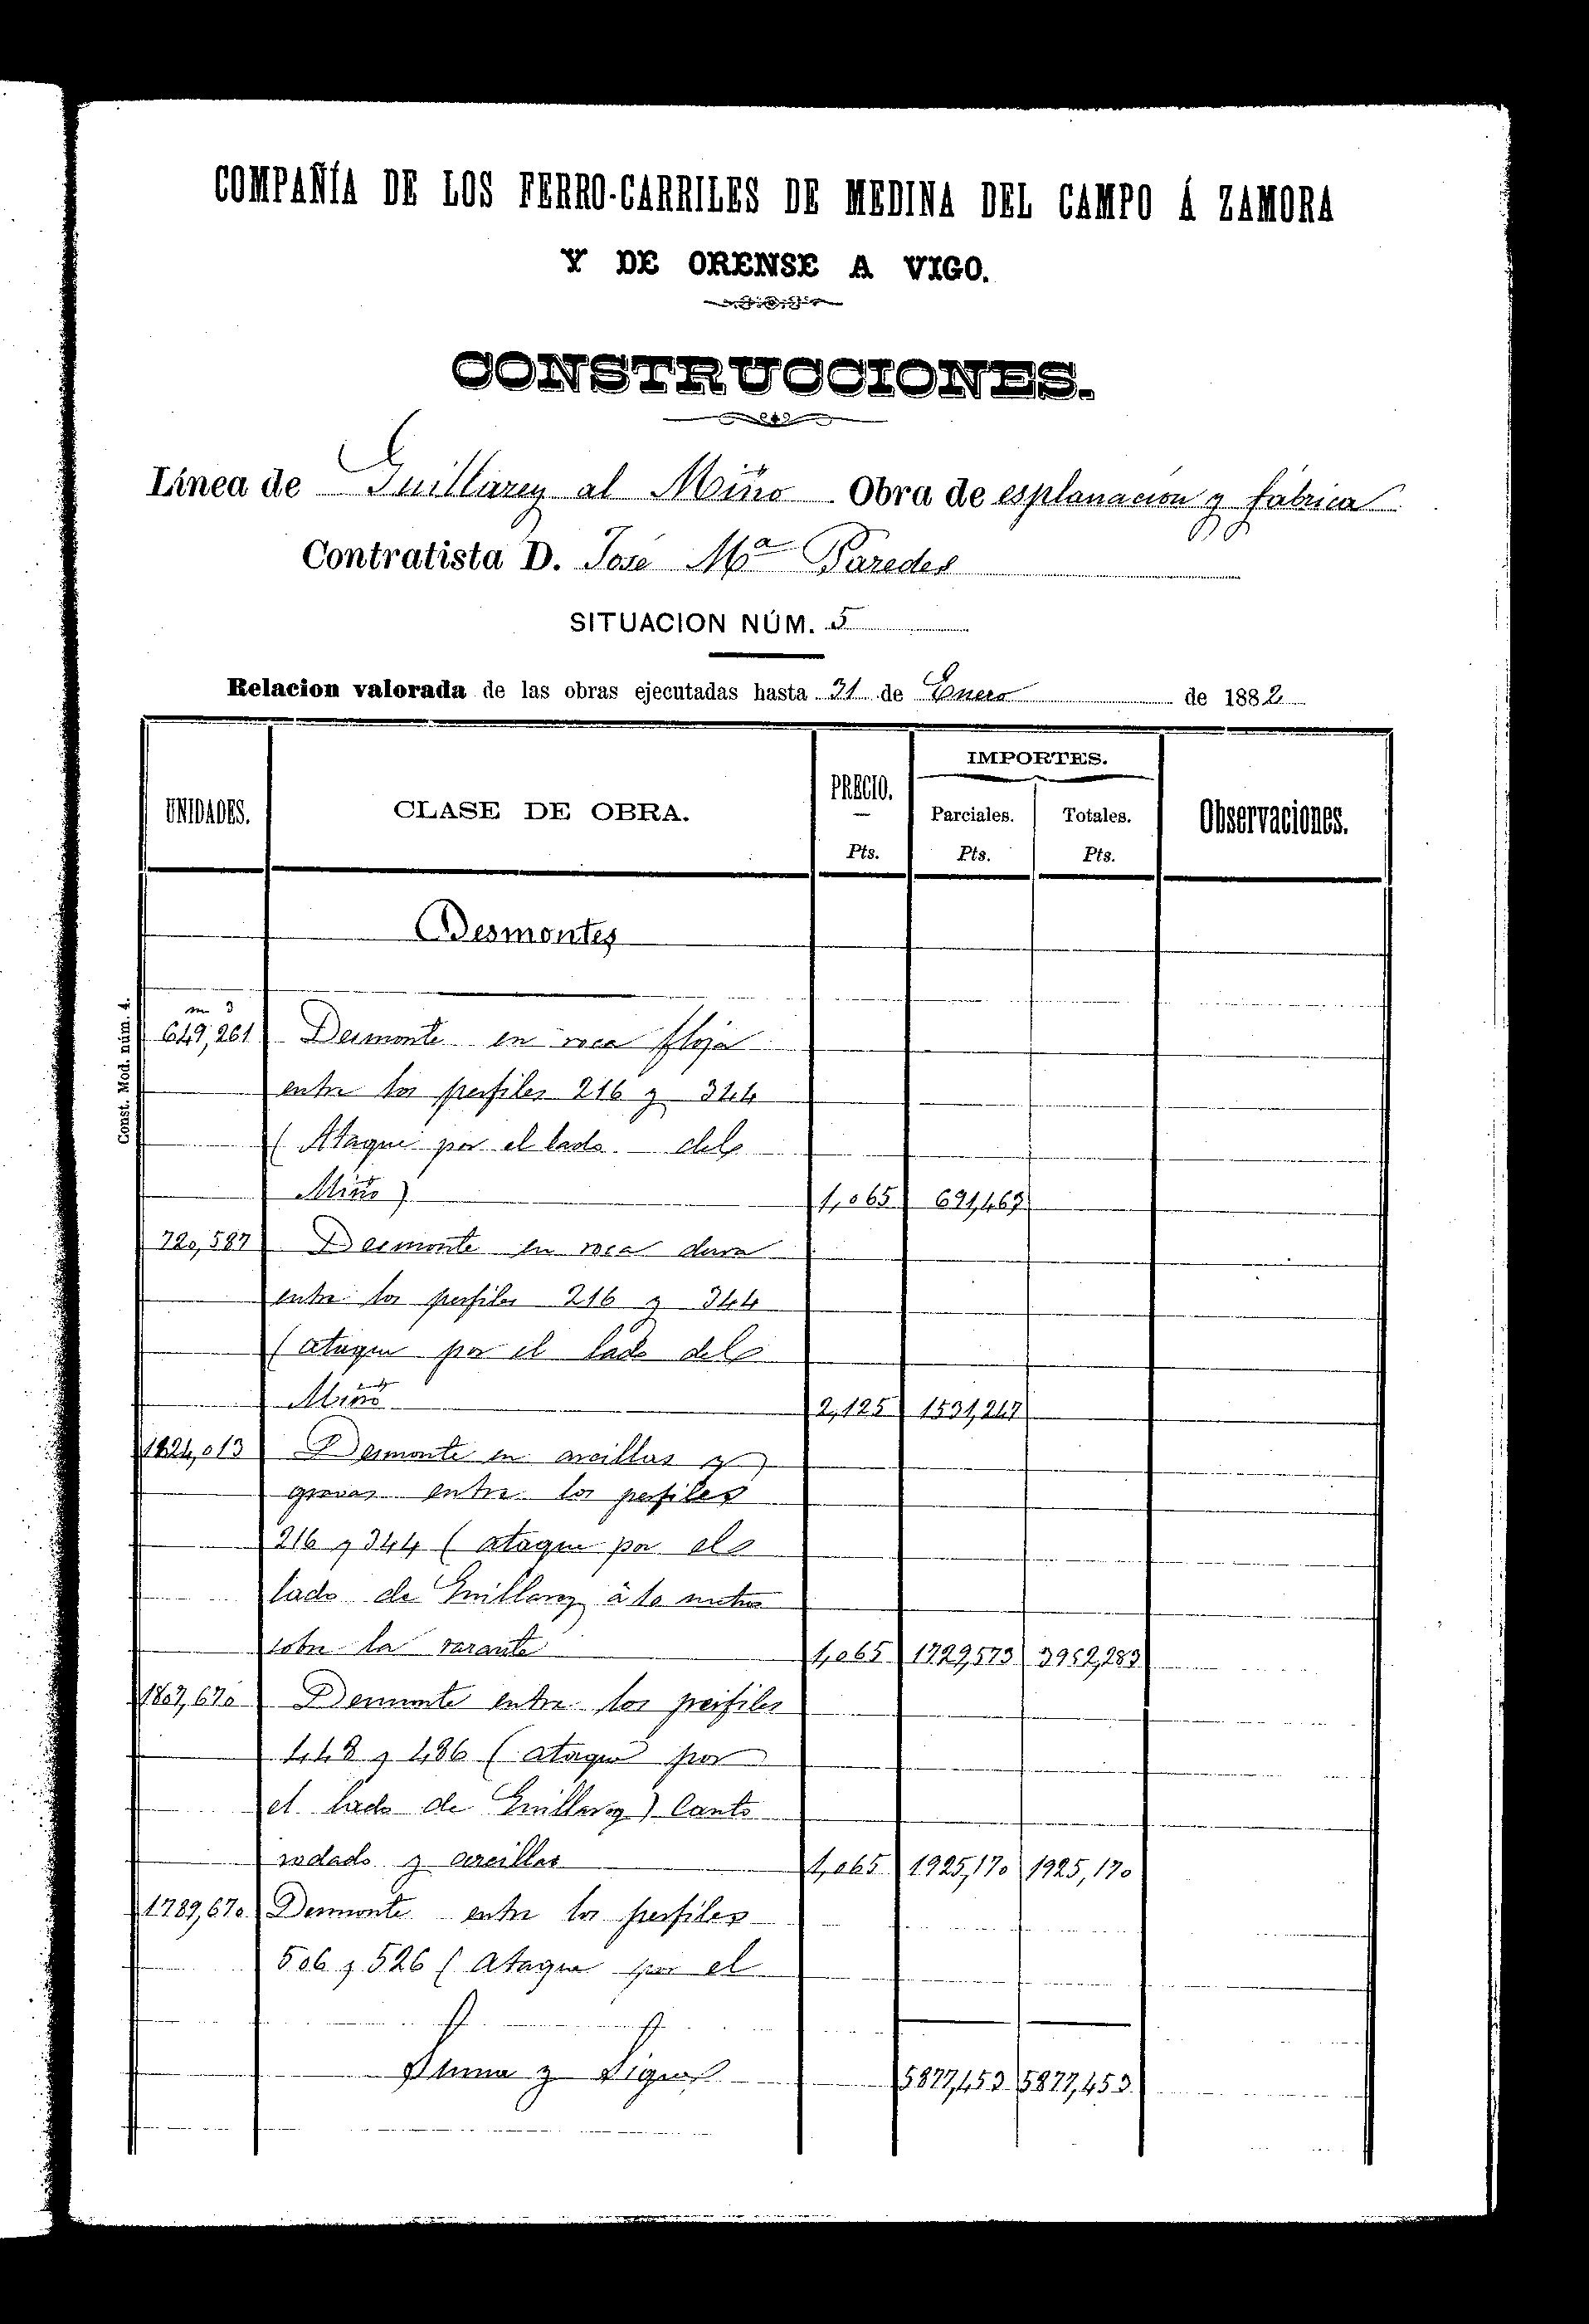 COMPAÑÍA DE LOS FERRO-CARRILES DE MEDINA DEL CAMPO Á ZAMORA
Y DE ORENSE A VIGO.
CONSTRUCCIONES.
Línea de Guillarey al Miño Obra de esplanación y fábrica
Contratista D. José Mª Paredes
SITUACION NÚM. 5
Relacion valorada de las obras ejecutadas hasta 31 de Enero de 1882
UNIDADES. CLASE DE OBRA. PRECIO. Pts. IMPORTES. Parciales. Pts. Totales. Pts. Observaciones.
Const. Mod. núm. 4.
Desmontes
m 3
649,261 Desmonte en roca floja
entre los perfiles 216 y 344
(Ataque por el lado del
Miño) 1,065 691,463
720,587 Desmonte en roca dura
entre los perfiles 216 y 344
(ataque por el lado del
Miño 2,125 1531,247
1624,013 Desmonte en arcillas y
gravas entre los perfiles
216 y 344 (ataque por el
lado de Guillarey á 10 metros
sobre la rasante 1,065 1729,573 3952,283
1807,670 Desmonte entre los perfiles
448 y 486 (ataque por
el lado de Guillarey) Canto
rodado y arcillas 1,065 1925,170 1925,170
1789,670 Desmonte entre los perfiles
506 y 526 (Ataque por el
Suma y Sigue 5877,453 5877,453